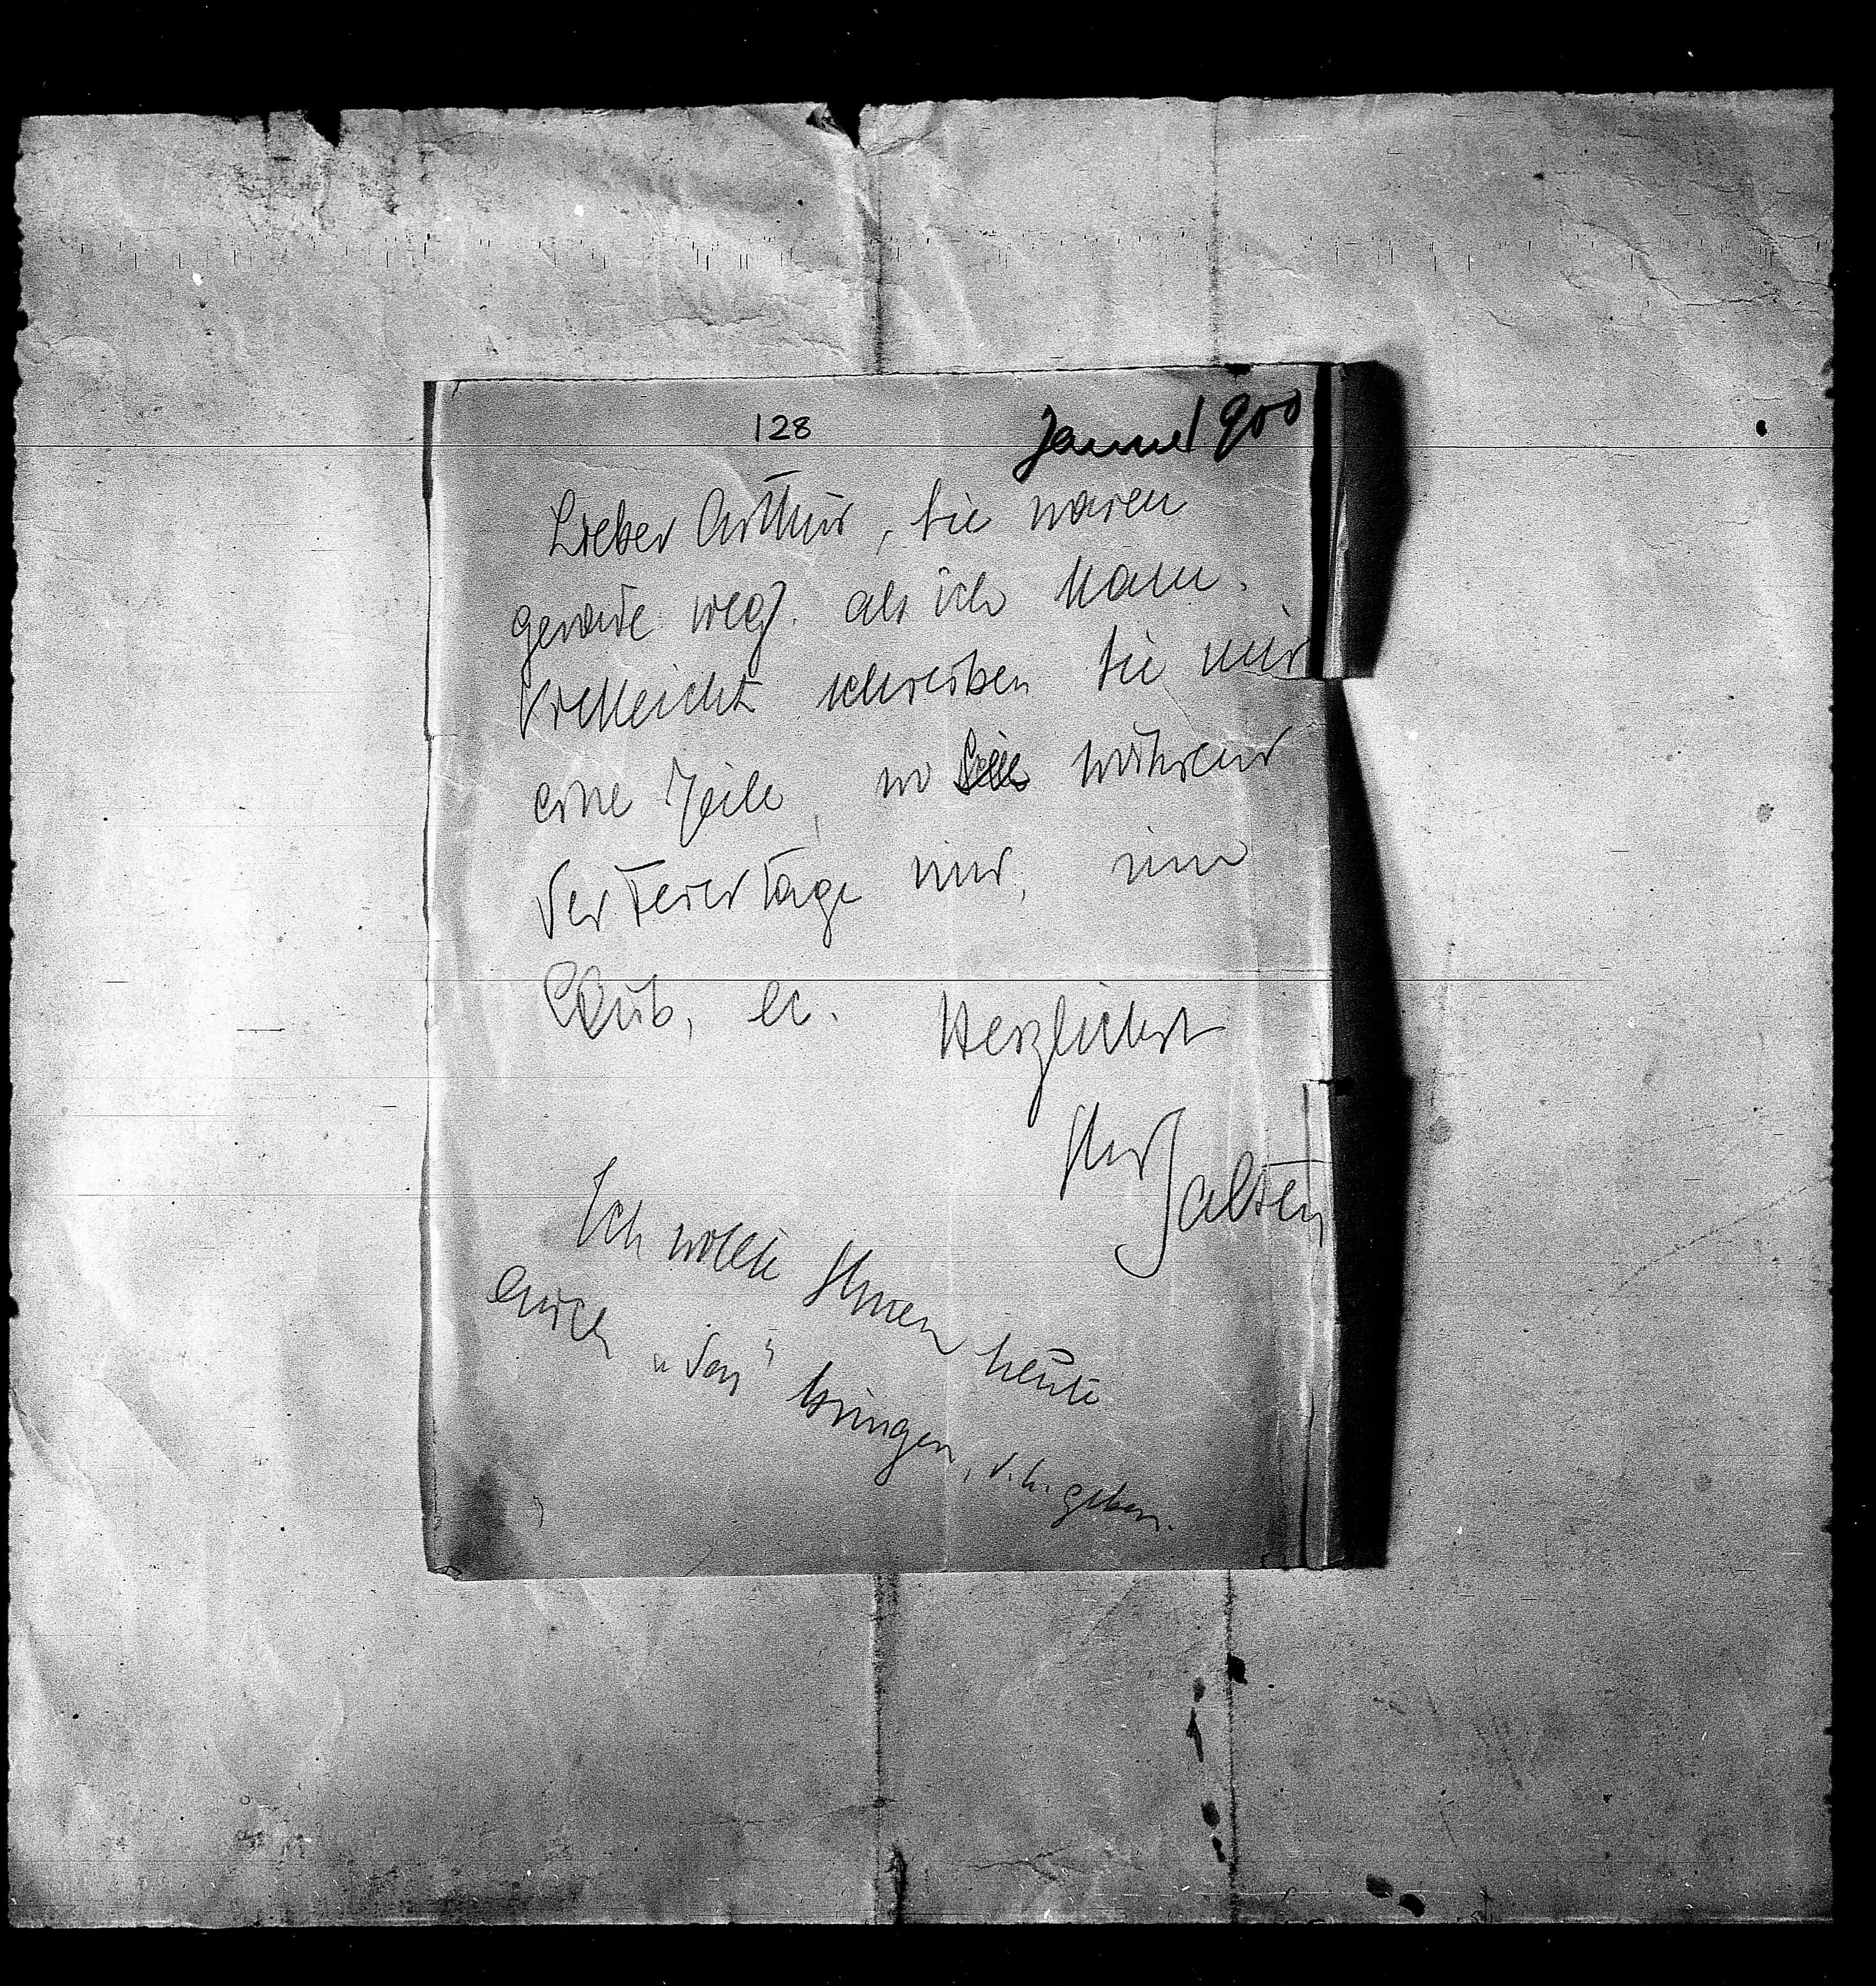 128
1900
Lieber Arthur, Sie waren
gerade weg, als ich kam.
Vielleicht schreiben Sie mir
eine Zeile, wo Sie während
der Feiertage sind, im
Club, etc. Herzlichst
Ihr Salten
Ich wollte Ihnen heute
bringen, d. h. geben.